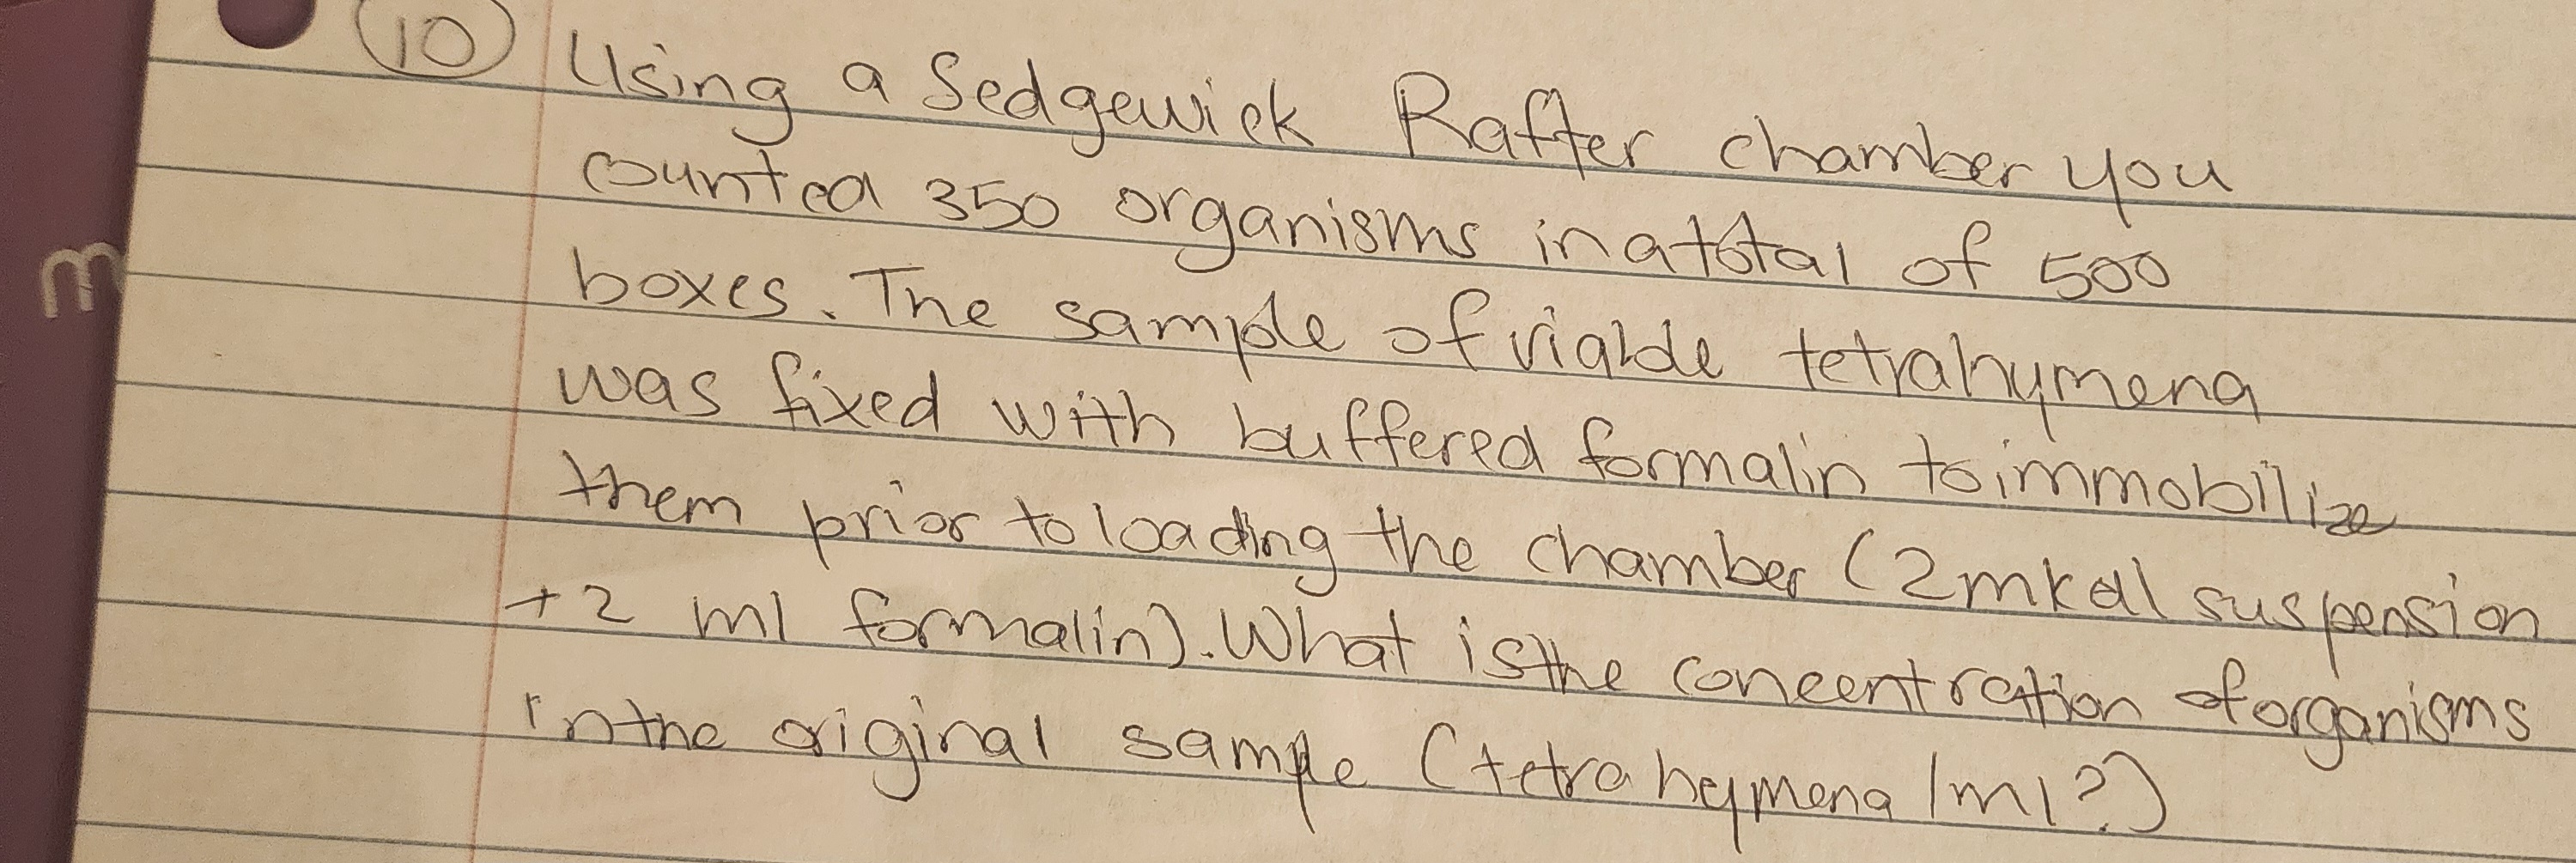 10 Using a Sedgewick Rafter chamber you
counted 350 organisms in a total of 500
boxes. The sample of viable tetrahymena
was fixed with buffered formalin to immobilize
them prior to loading the chamber (2 suspension
+2 ml formalin). What is the concentration of organisms
in the original sample (tetrahymena/ml?)
m